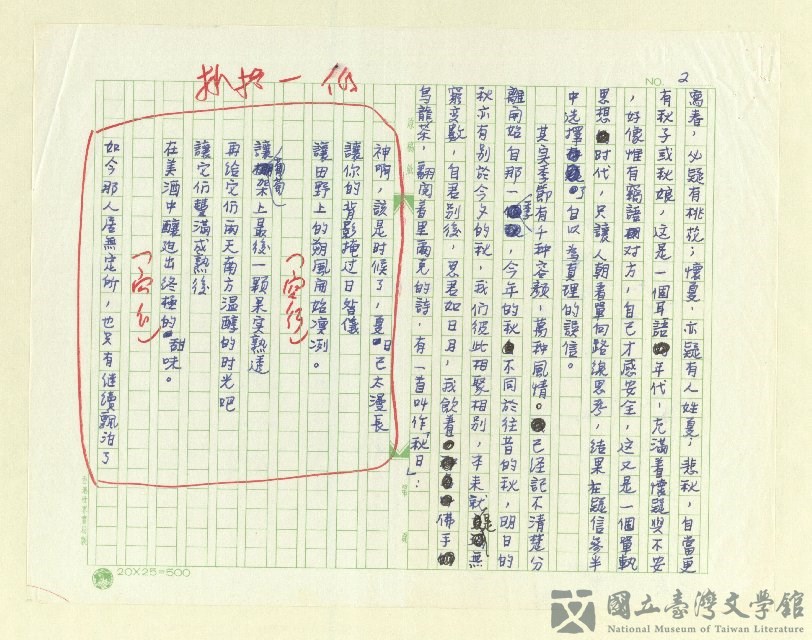 NO. 2
寓春，必疑有桃花；懷夏，亦疑有人姓夏；悲秋，自當更
有秋子或秋娘，這是一個耳語年代，充滿着懷疑與不安
，好像惟有竊語對方，自己才感安全，這又是一個單軌
思想時代，只讓人朝着單向路線思考，結果在疑信參半
中選擇自以為真理的誤信。
其實季節有千种容顏，萬种風情。已經記不清楚分
離開始自那一季，今年的秋不同於往昔的秋，明日的
秋亦有別於今夕的秋，我們從此相聚相別，本來就是無
窮變數，自君別後，思君如日月，我飲着佛手
烏龍茶，翻閱着里爾克的詩，有一首叫作「秋日」：
抄打一份
神啊，該是时候了，夏日已太漫長
讓你的背影掩过日晷儀
讓田野上的朔風開始凜冽。
（空行）
讓葡萄架上最後一顆果实熟透
再給它仍兩天南方溫醇的时光吧
讓它仍豐滿成熟後
在美酒中釀迫出終極的甜味。
（空行）
如今那人居無定所，也只有继續飄泊了
20X25=500
國立臺灣文學館
National Museum of Taiwan Literature